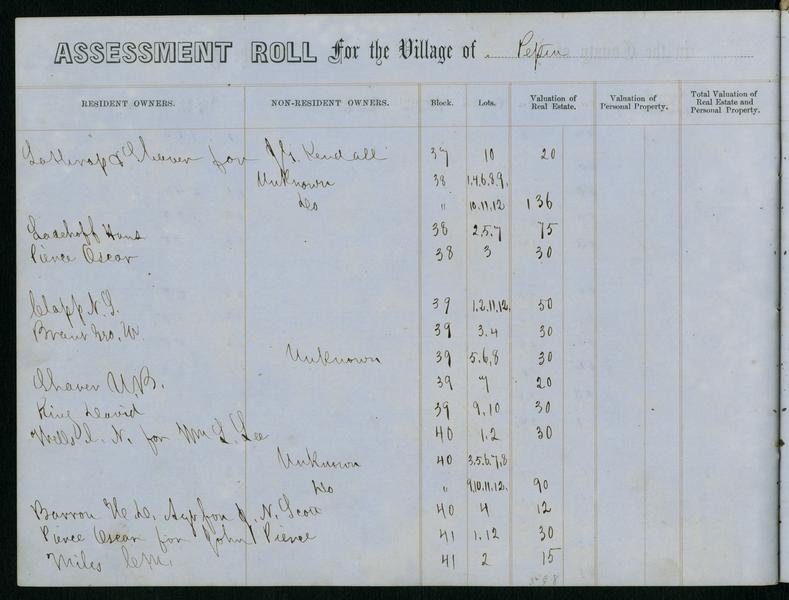 ASSESSMENT ROLL For the Village of Pepin
RESIDENT OWNERS. NON-RESIDENT OWNERS. Block. Lots. Valuation of Real Estate. Valuation of Personal Property. Total Valuation of Real Estate and Personal Property.
Lathrop & Shaver for Jas. Kendall 37 10 20
Unknown 38 1.4.6.8.9.
Do " 10.11.12 136
Hans 38 2.5.7 75
Pierce Oscar 38 3 30
Clapp N. 39 1.2.11.12. 50
Geo. W. 39 3.4 30
Unknown 39 5.6.8 30
Shaver U.B. 39 7 20
King David 39 9.10 30
Wells N. for Wm L. Lee 40 1.2 30
Unknown 40 3.5.6.7.8
Do " 9.10.11.12. 90
Barron H.D. Agt for J. N. Scott 40 4 12
Pierce Oscar for John Pierce 41 1.12 30
Miles C.M. 41 2 15